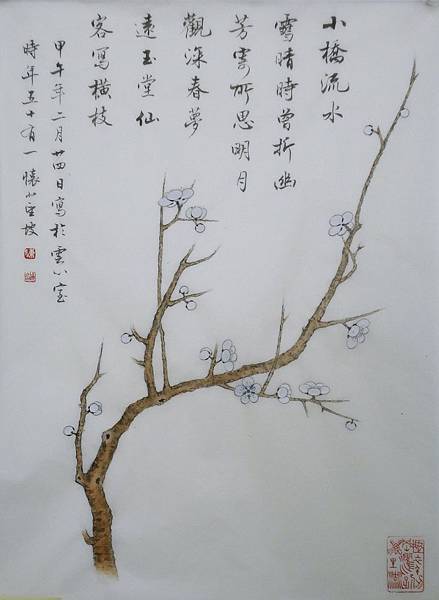 小橋流水
雪晴時曾折幽
芳寄所思明月
觀深春夢
遠玉堂仙
客寫橫枝
甲午年二月廿四日寫於雲心室
時年五十有一懷